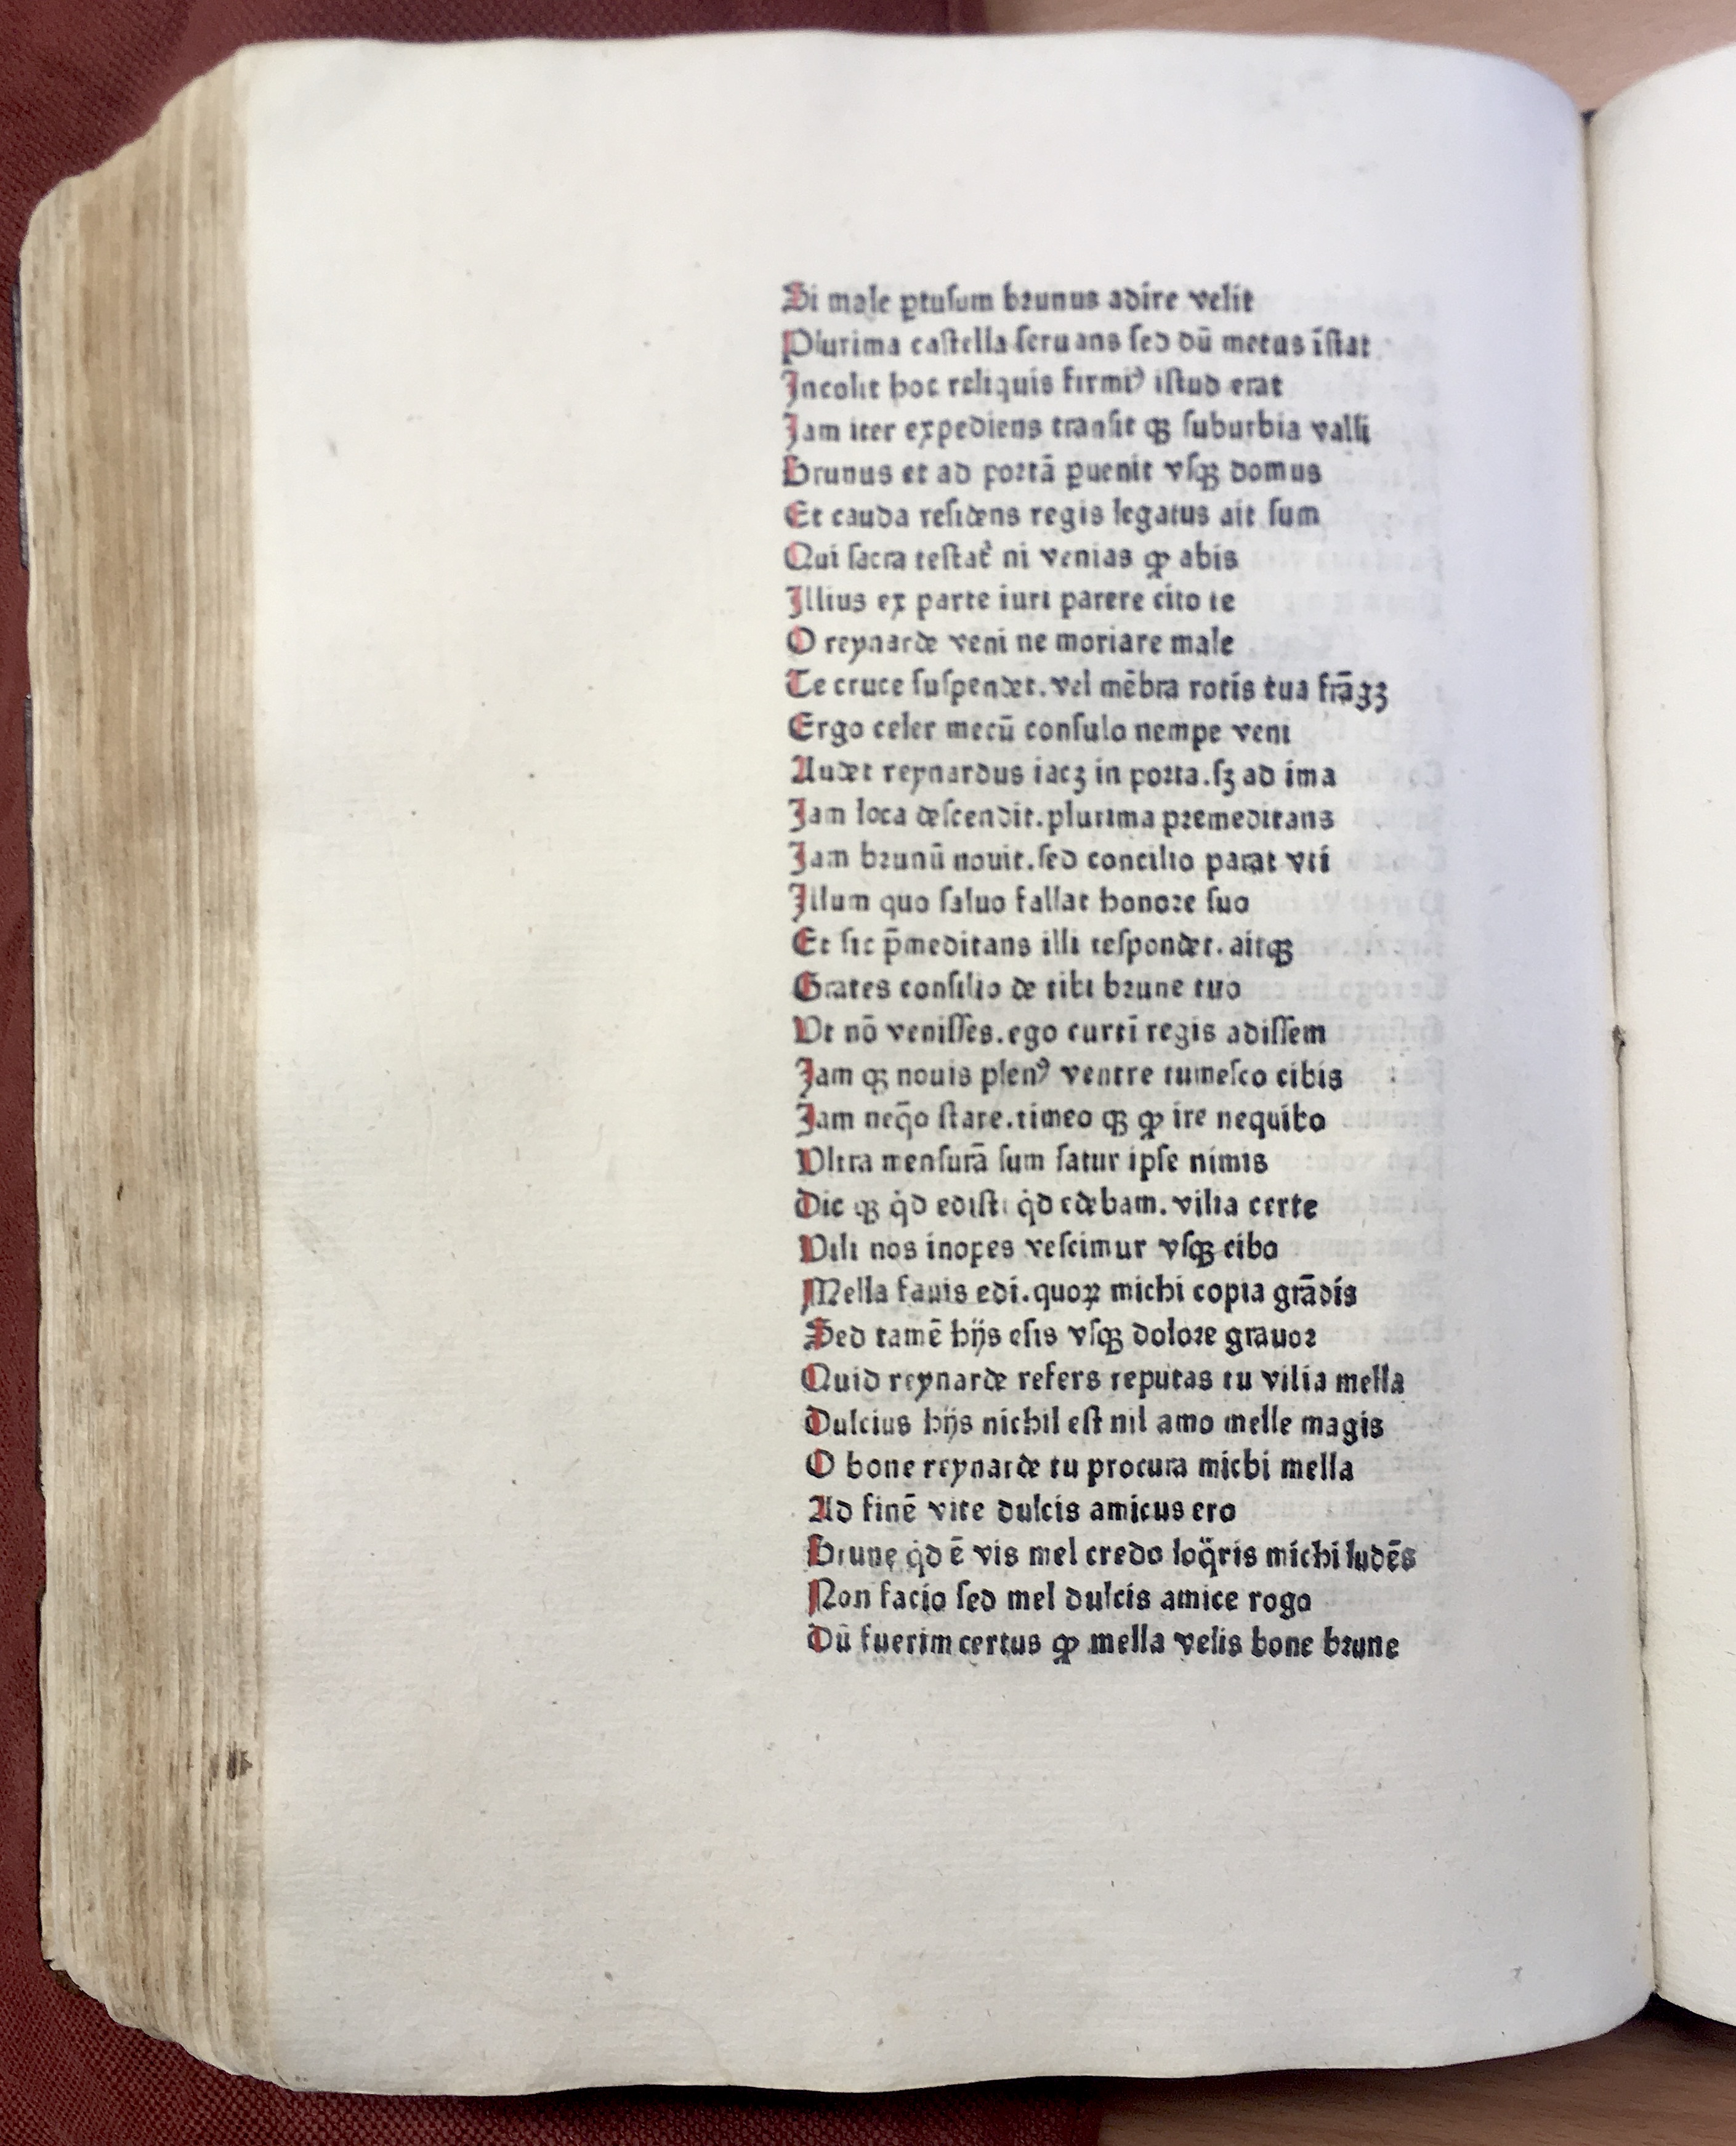 Si male ꝑtuſum bꝛunus adire velit
Plurima caſtella ſeruans ſed dū metus īſtat
Incolit hoc reliquis firmiꝰ iſtud erat
Jam iter expediens tranſit qꝫ ſuburbia valli
Brunus et ad poꝛtā ꝑuenit vſqꝫ domus
Et cauda reſidens regis legatus ait ſum
Qui ſacra teſtat᷑ ni venias ꝙ abis
Illius ex parte iuri parere cito te
O reynarde veni ne moriare male
Te cruce ſuſpendet. vel mēbra rotis tua frāgꝫ
Ergo celer mecū conſulo nempe veni
Audet reynardus iacꝫ in poꝛta. ſꝫ ad ima
Jam loca deſcendit. plurima pꝛemeditans
Jam bꝛunū nouit. ſed concilio parat vti
Illum quo ſaluo fallat honoꝛe ſuo
Et ſic p̄meditans illi reſpondet. aitqꝫ
Grates conſilio de tibi bꝛune tuo
Vt nō veniſſes. ego curtī regis adiſſem
Jam qꝫ nouis plenꝰ ventre tumeſco cibis
Jam neq̄o ſtare. timeo qꝫ ꝙ ire nequibo
Vltra menſurā ſum ſatur ipſe nimis
Dic qꝫ qͥd ediſti qͥd edebam. vilia certe
Vili nos inopes veſcimur vſqꝫ cibo
Mella fauis edi. quoꝝ michi copia grādis
Sed tamē hijs eſis vſqꝫ doloꝛe grauoꝛ
Quid reynarde refers reputas tu vilia mella
Dulcius hijs nichil eſt nil amo melle magis
O bone reynarde tu procura michi mella
Ad finē vite dulcis amicus ero
Brune qͥd ē vis mel credo loq̈ris michi ludēs
Non facio ſed mel dulcis amice rogo
Dū fuerim certus ꝙ mella velis bone bꝛune